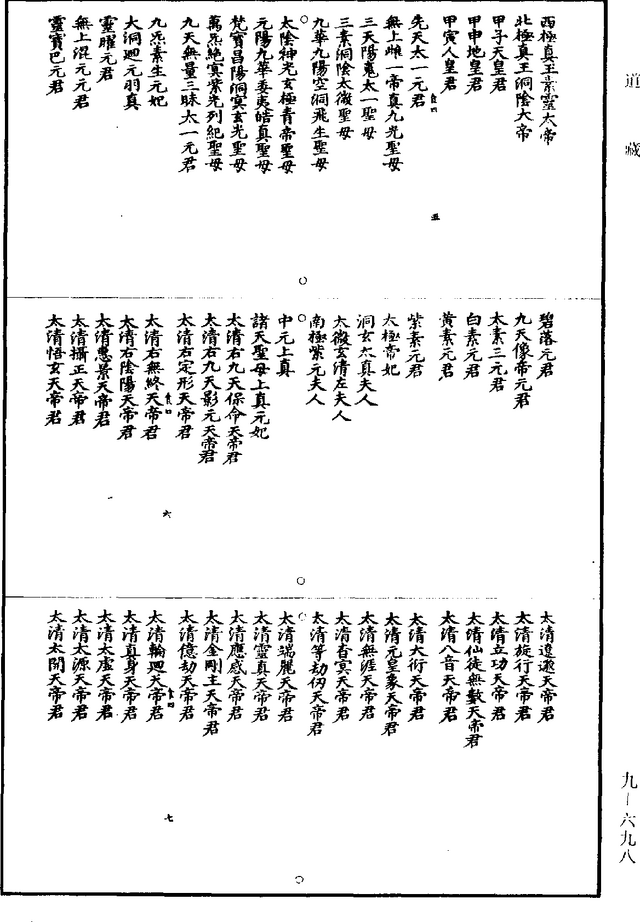 道藏
西極真王素靈太帝
北極真王洞陰大帝
甲子天皇君
甲申地皇君
甲寅人皇君
先天太一元君
無上雌一帝真九光聖母
三天陽鬼太一聖母
三素洞陰太微聖母
九華九陽空洞飛生聖母
太陰神光玄極青帝聖母
元陽九華委夷皓真聖母
梵寶昌陽洞冥玄光聖母
萬炁絕冥紫光列紀聖母
九天無量三昧太一元君
九炁素生元妃
大洞迴元羽真
靈曜元君
無上混元元君
靈寶巴元君
五
碧落元君
九天像帝元君
太素三元君
白素元君
黃素元君
紫素元君
太極帝妃
洞玄太真夫人
太微玄清左夫人
南極紫元夫人
中元上真
諸天聖母上真元妃
太清右九天保命天帝君
太清右九天影元天帝君
太清右定形天帝君
太清右無終天帝君
太清右陰陽天帝君
太清惠景天帝君
太清攝正天帝君
太清悟玄天帝君
六
太清遐邈天帝君
太清旋行天帝君
太清立功天帝君
太清仙徒無數天帝君
太清八音天帝君
太清大術天帝君
太清元皇象天帝君
太清無涯天帝君
太清杳冥天帝君
太清等劫仞天帝君
太清端麗天帝君
太清靈真天帝君
太清應感天帝君
太清金剛主天帝君
太清億劫天帝君
太清輪迴天帝君
太清真身天帝君
太清太虛天帝君
太清太源天帝君
太清太開天帝君
七
九-六九八